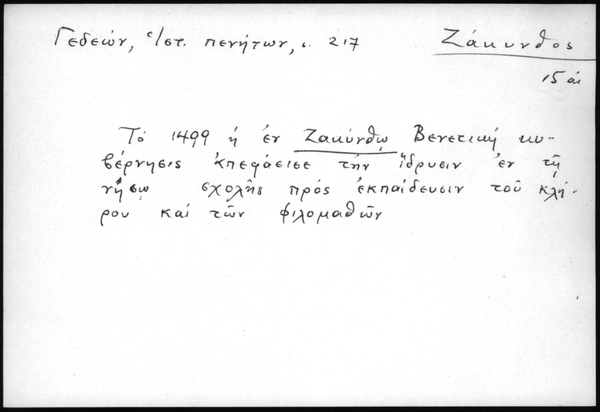 Γεδεών, Ἱστ. πενήτων, σ. 217
Ζάκυνθος
15 αἰ
Τὸ 1499 ἡ ἐν Ζακύνθῳ Βενετικὴ κυ-
βέρνησις ἀπεφάσισε τὴν ἵδρυσιν ἐν τῇ
νήσῳ σχολῆς πρὸς ἐκπαίδευσιν τοῦ κλή-
ρου καὶ τῶν φιλομαθῶν